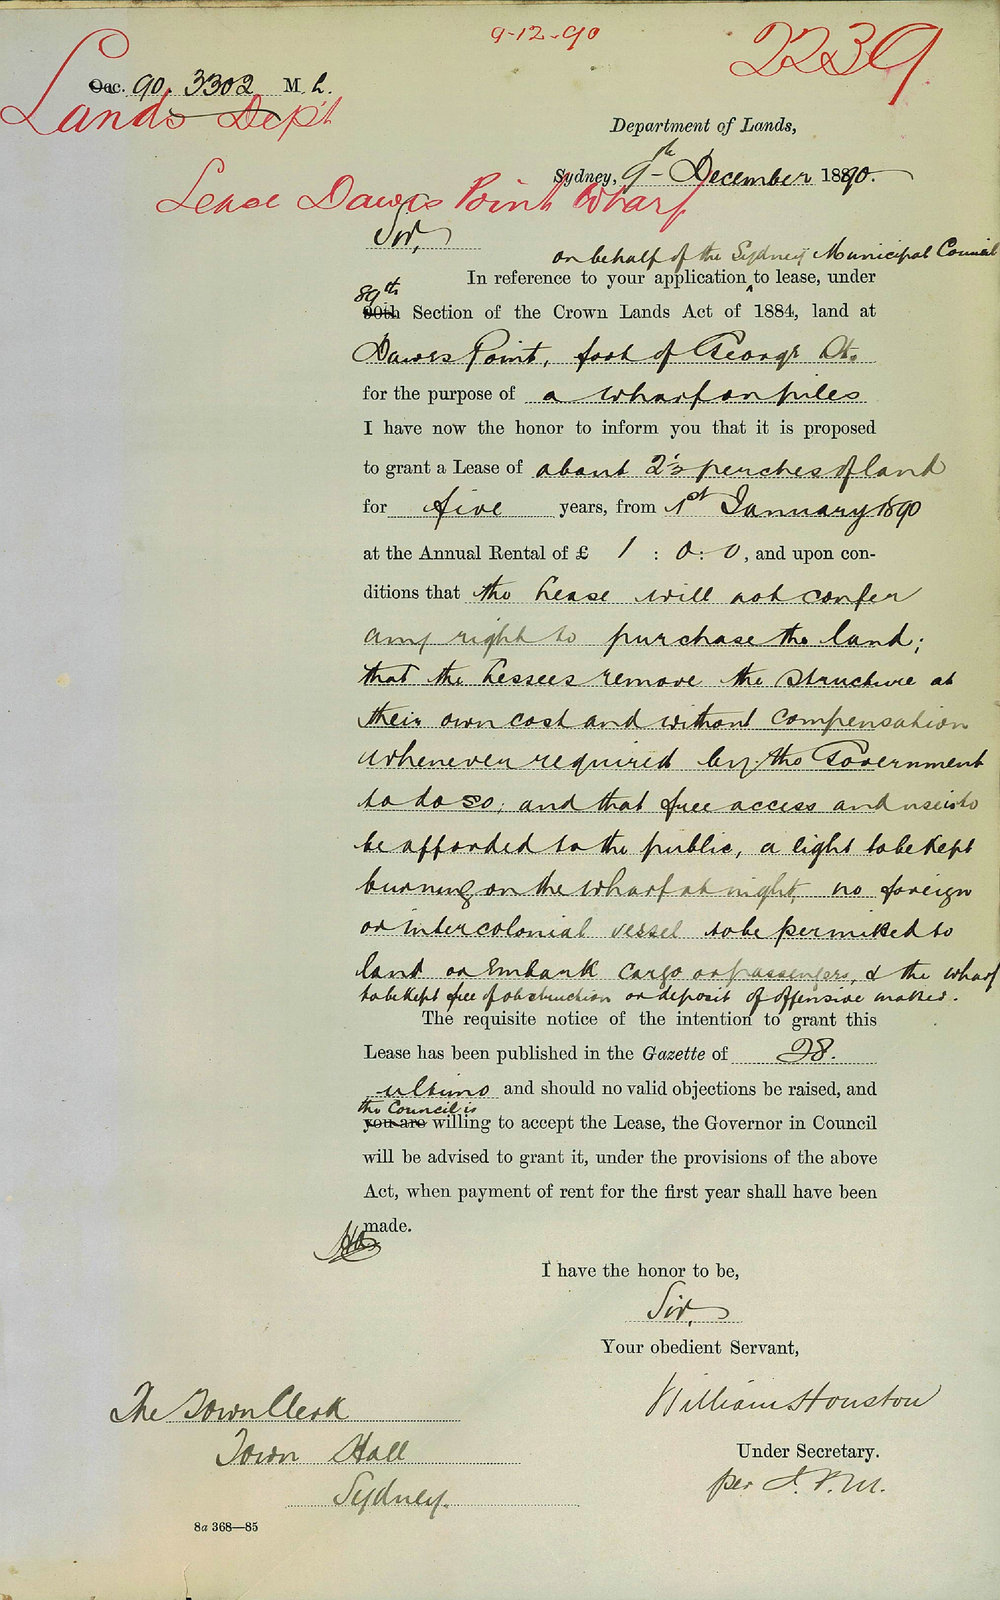 9-12-90
2239
Occ. 90. 3302 M L.
Lands Dept
Department of Lands,
Sydney, 9th December 1890.
Lease Dawes Point Wharf
Sir,
on behalf of the Sydney Municipal Council
In reference to your application ^ to lease, under
89th
90th Section of the Crown Lands Act of 1884, land at
Dawes Point, foot of George St.
for the purpose of a wharf on piles
I have now the honor to inform you that it is proposed
to grant a Lease of about perches of land
for five years, from 1st January 1890
at the Annual Rental of £ 1 : 0 : 0, and upon con-
ditions that the Lease will not confer
any right to purchase the land;
that the Lessees remove the structure at
their own cost and without compensation
whenever required by the Government
to do so; and that free access and use is to
be afforded to the public, a light to be kept
burning on the wharf at night, no foreign
or intercolonial vessel to be permitted to
land or Embark cargo or passengers, & the wharf
to be kept free of obstruction or deposit of offensive matter.
The requisite notice of the intention to grant this
Lease has been published in the Gazette of 28.
ultimo and should no valid objections be raised, and
the Council is
you are willing to accept the Lease, the Governor in Council
will be advised to grant it, under the provisions of the above
Act, when payment of rent for the first year shall have been
made.
I have the honor to be,
Sir,
Your obedient Servant,
William Houston
Under Secretary.
per J.P.M.
The Town Clerk
Town Hall
Sydney.
8a 368—85